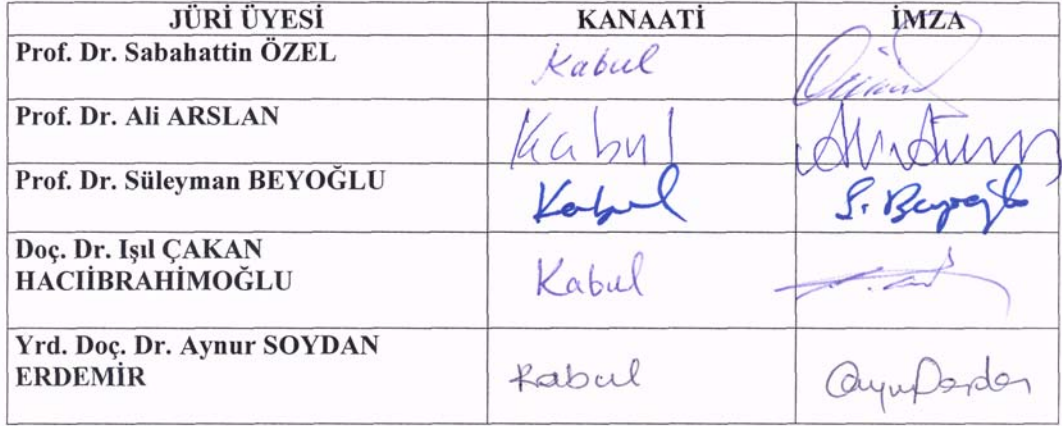 JÜRİ ÜYESİ KANAATİ İMZA
Prof. Dr. Sabahattin ÖZEL Kabul
Prof. Dr. Ali ARSLAN Kabul
Prof. Dr. Süleyman BEYOĞLU Kabul S. Beyoğlu
Doç. Dr. Işıl ÇAKAN
HACIİBRAHİMOĞLU Kabul
Yrd. Doç. Dr. Aynur SOYDAN
ERDEMİR Kabul